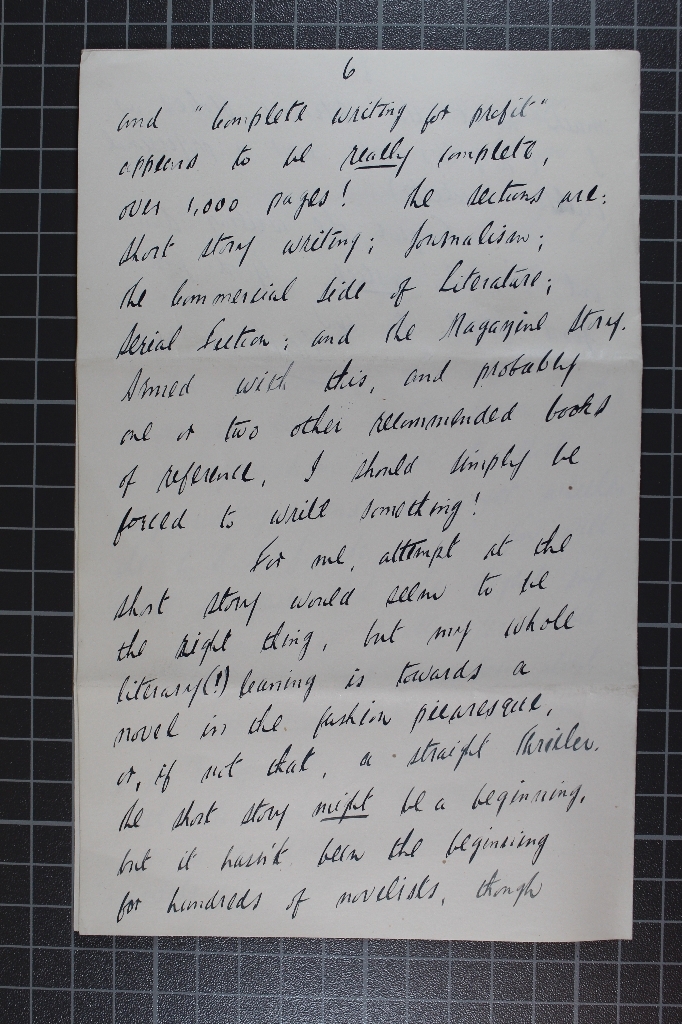 6
and "Complete writing for profit"
appears to be really complete,
over 1,000 pages! The sections are:
Short story writing; Journalism;
The Commercial Side of Literature;
Serial Fiction; and the Magazine Story.
Armed with this, and probably
one or two other recommended books
of reference, I should simply be
forced to write something!
For me, attempt at the
short story would seem to be
the right thing, but my whole
literary(!) leaning is towards a
novel in the fashion picaresque,
or, if not that, a straight thriller.
The short story might be a beginning,
but it hasn't been the beginning
for hundreds of novelists, though